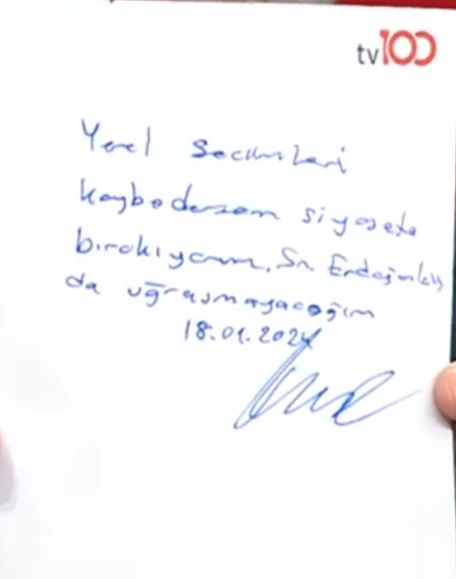 tv100
Yerel Seçimleri
kaybedersem siyasete
bırakıyorum. Sn. Erdoğanla
da uğraşmayacağım
18.01.2024